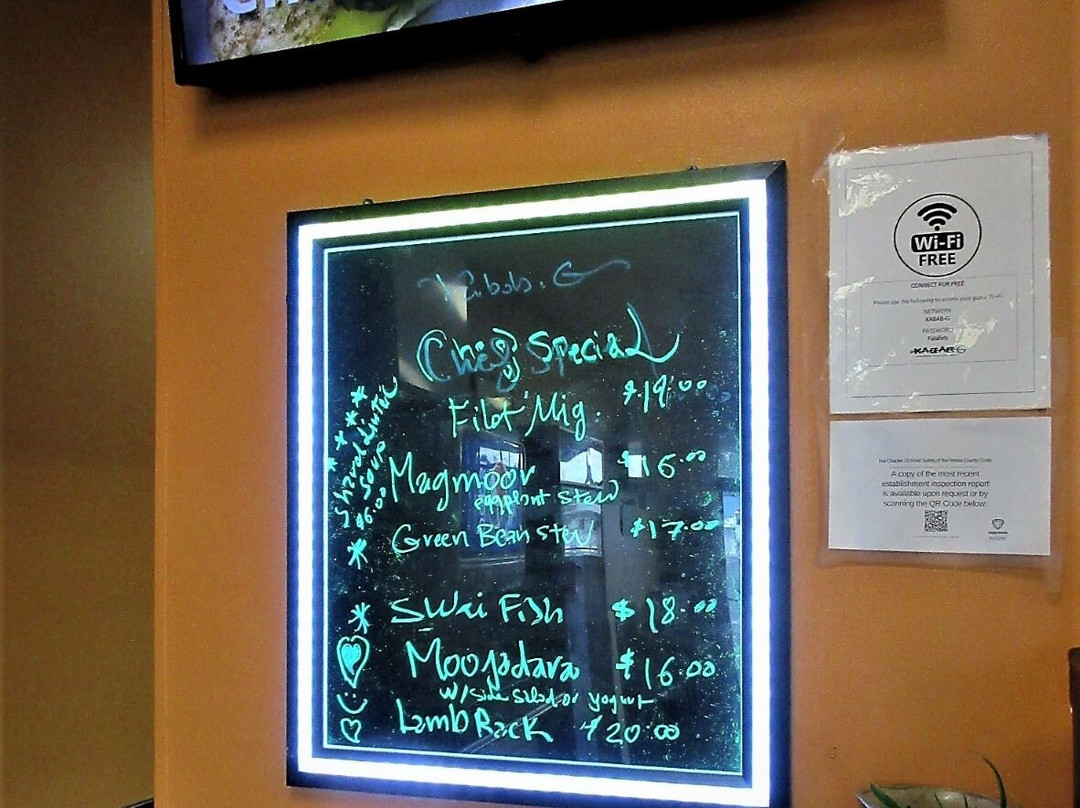 Kabob. G
Chef Special
Filet Mig. $19.00
Magmoor $16.00
eggplant stew
Green Bean Stew $17.00
Swai Fish $18.00
Moojadara $16.00
w/ side salad or yogurt
Lamb Rack $20.00
soup
Wi-Fi
FREE
CONNECT FOR FREE
Please use the following to access your guest Wi-Fi
NETWORK
KABAB-G
PASSWORD
A copy of the most recent
establishment inspection report
is available upon request or by
scanning the QR Code below: